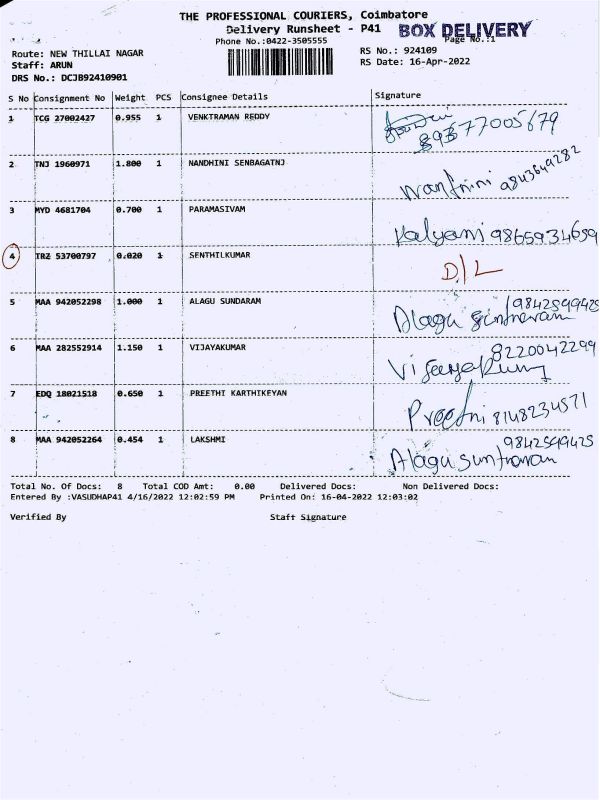 THE PROFESSIONAL COURIERS, Coimbatore
Delivery Runsheet - P41 BOX DELIVERY
Phone No.:0422-3505555 Page No.:1
Route: NEW THILLAI NAGAR RS No.: 924109
Staff: ARUN RS Date: 16-Apr-2022
DRS No.: DCJB92410901
S No Consignment No Weight PCS Consignee Details Signature
1 TCG 27002427 0.955 1 VENKTRAMAN REDDY
2 TNJ 1960971 1.800 1 NANDHINI SENBAGATNJ 9843649282
3 MYD 4681704 0.700 1 PARAMASIVAM Kalyani 9865934659
4 TRZ 53700797 0.020 1 SENTHILKUMAR D/L
5 MAA 942052298 1.000 1 ALAGU SUNDARAM Alagu 9842599425
6 MAA 282552914 1.150 1 VIJAYAKUMAR 8220042299
7 EDQ 18021518 0.650 1 PREETHI KARTHIKEYAN 8148234571
8 MAA 942052264 0.454 1 LAKSHMI Alagu 9842599425
Total No. Of Docs: 8 Total COD Amt: 0.00 Delivered Docs: Non Delivered Docs:
Entered By :VASUDHAP41 4/16/2022 12:02:59 PM Printed On: 16-04-2022 12:03:02
Verified By Staff Signature